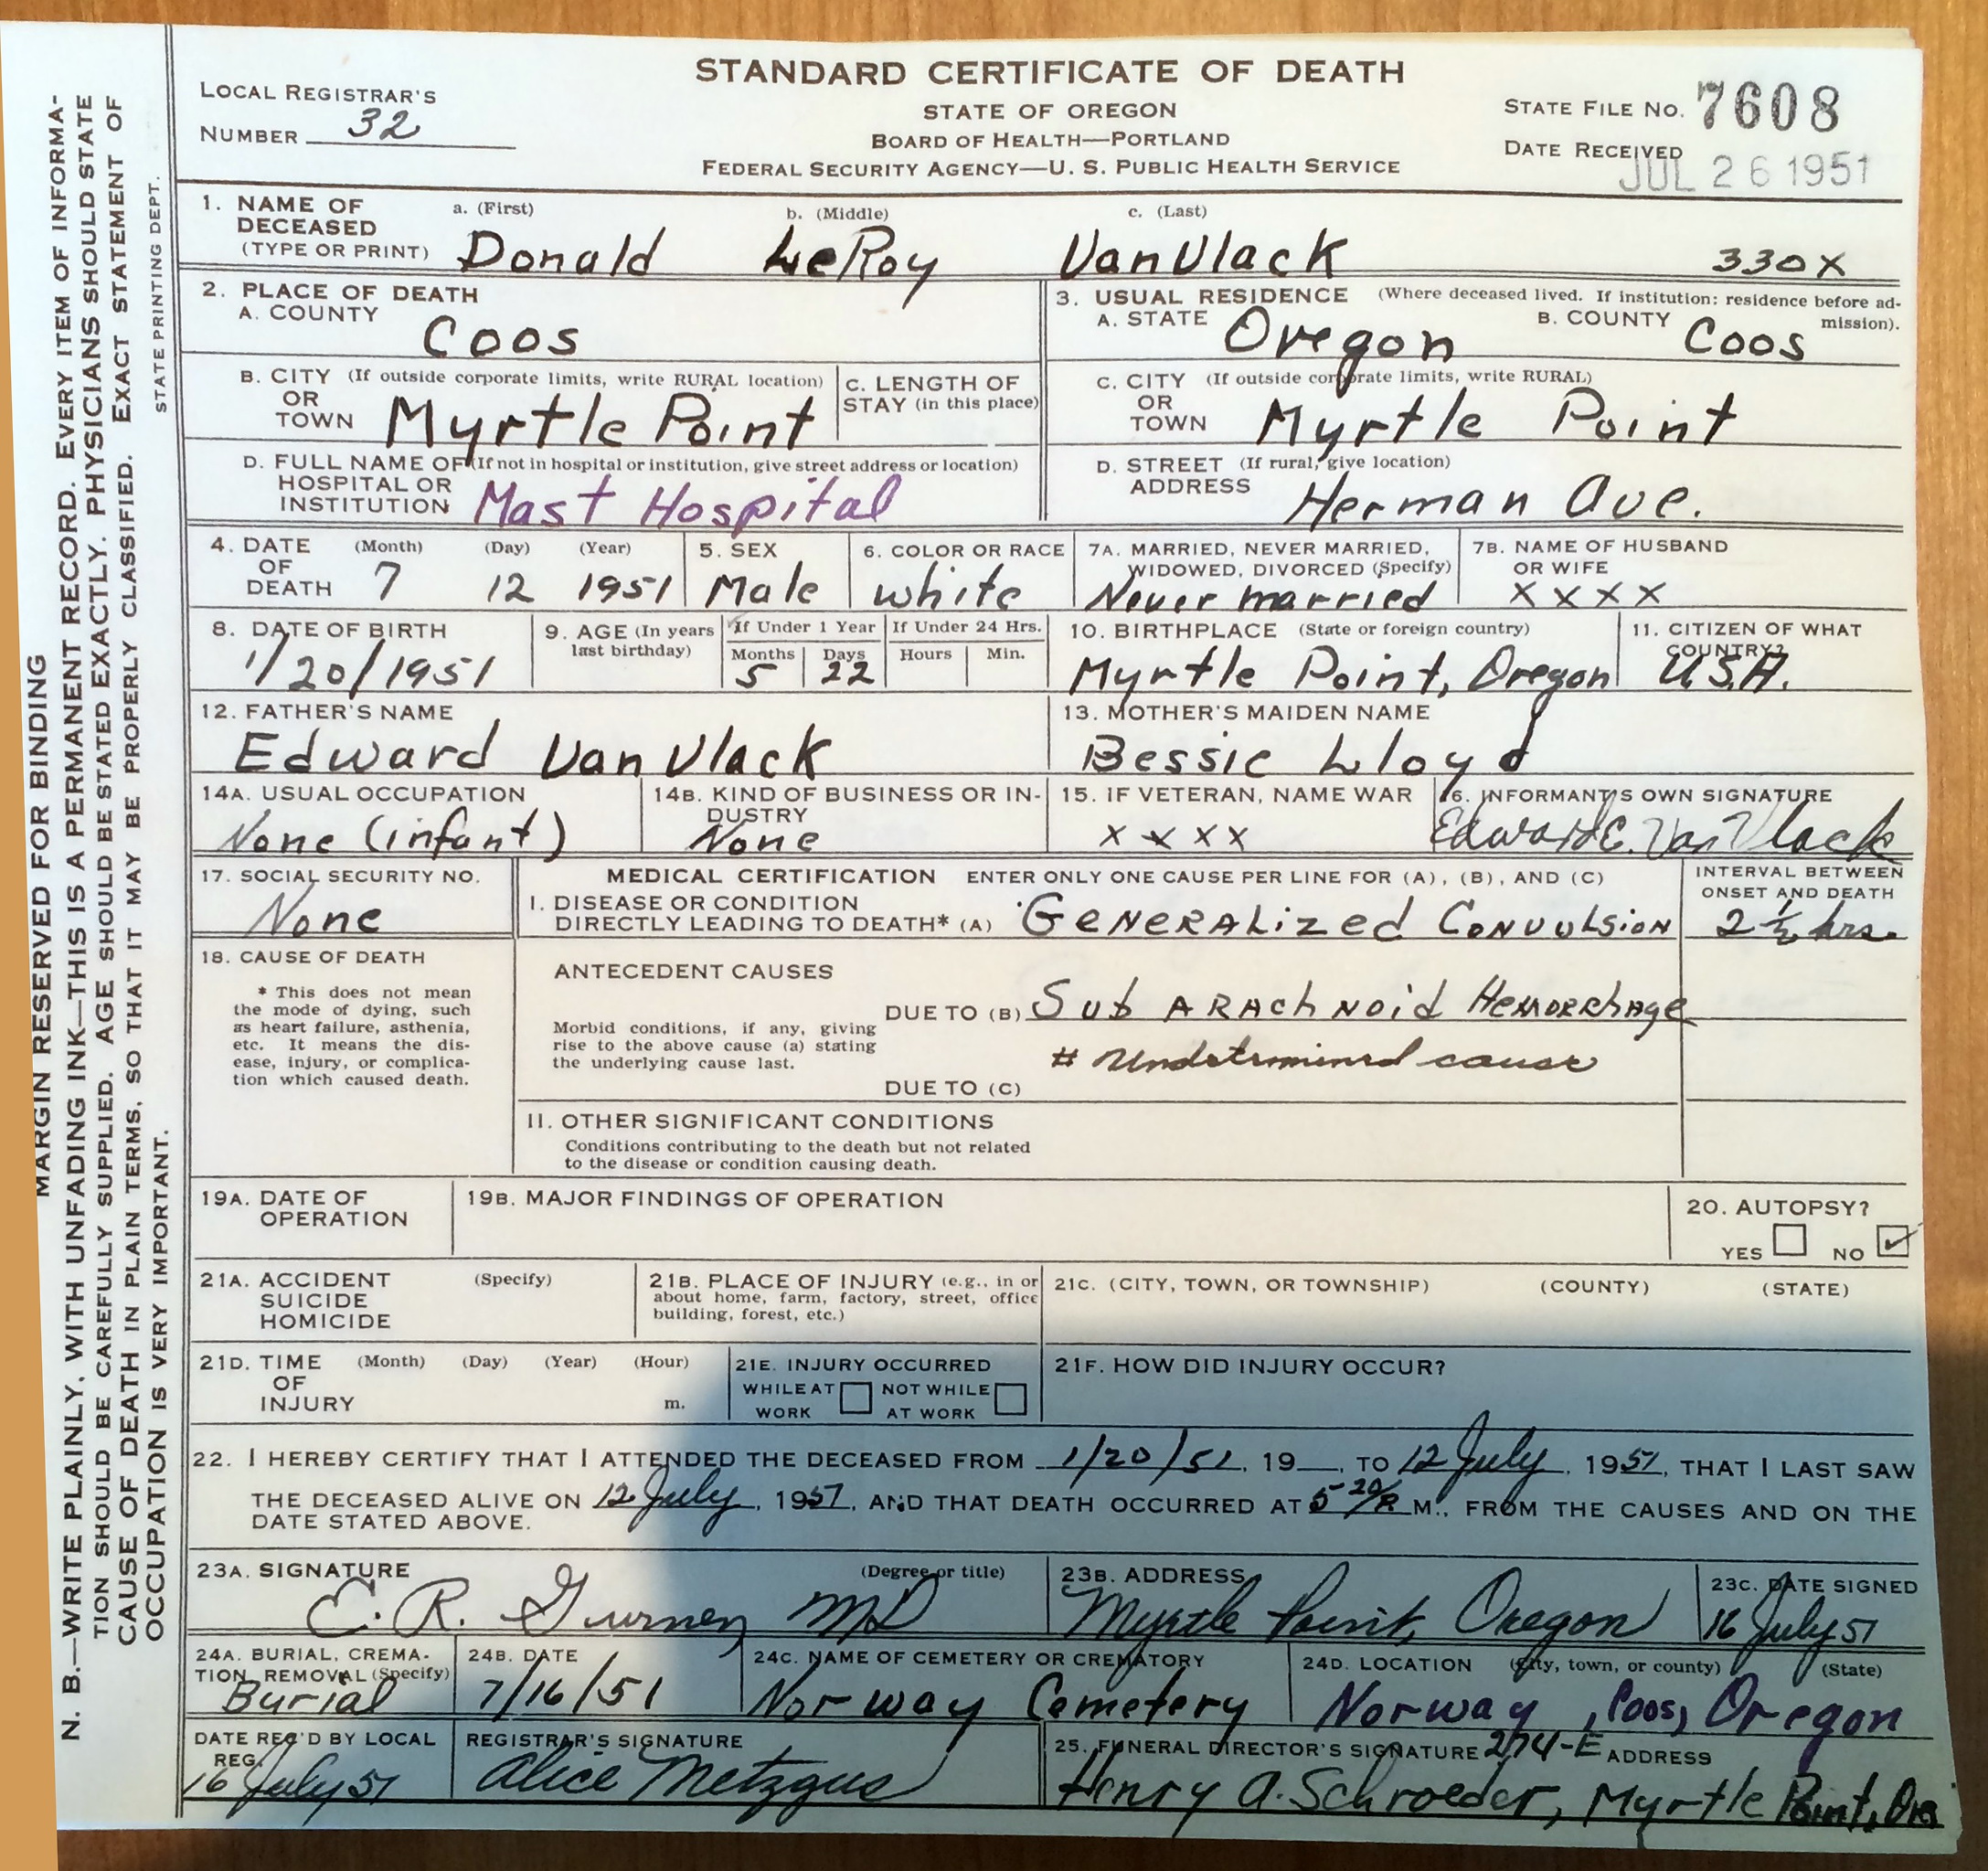 STANDARD CERTIFICATE OF DEATH
STATE OF OREGON
BOARD OF HEALTH—PORTLAND
FEDERAL SECURITY AGENCY—U. S. PUBLIC HEALTH SERVICE
LOCAL REGISTRAR'S
NUMBER 32
STATE FILE NO. 7608
DATE RECEIVED
JUL 26 1951
MARGIN RESERVED FOR BINDING
N. B.—WRITE PLAINLY, WITH UNFADING INK—THIS IS A PERMANENT RECORD. EVERY ITEM OF INFORMA-
TION SHOULD BE CAREFULLY SUPPLIED. AGE SHOULD BE STATED EXACTLY. PHYSICIANS SHOULD STATE
CAUSE OF DEATH IN PLAIN TERMS, SO THAT IT MAY BE PROPERLY CLASSIFIED. EXACT STATEMENT OF
OCCUPATION IS VERY IMPORTANT.
STATE PRINTING DEPT.
1. NAME OF DECEASED (TYPE OR PRINT)
a. (First) b. (Middle) c. (Last)
Donald LeRoy VanVlack 330X
2. PLACE OF DEATH
A. COUNTY
Coos
3. USUAL RESIDENCE (Where deceased lived. If institution: residence before ad-
mission).
A. STATE Oregon B. COUNTY Coos
B. CITY OR TOWN (If outside corporate limits, write RURAL location)
Myrtle Point
C. LENGTH OF
STAY (in this place)
C. CITY OR TOWN (If outside corporate limits, write RURAL)
Myrtle Point
D. FULL NAME OF HOSPITAL OR INSTITUTION (If not in hospital or institution, give street address or location)
Mast Hospital
D. STREET ADDRESS (If rural, give location)
Herman Ave.
4. DATE OF DEATH (Month) (Day) (Year)
7 12 1951
5. SEX
Male
6. COLOR OR RACE
White
7A. MARRIED, NEVER MARRIED,
WIDOWED, DIVORCED (Specify)
Never married
7B. NAME OF HUSBAND
OR WIFE
X X X X
8. DATE OF BIRTH
1/20/1951
9. AGE (In years
last birthday)
If Under 1 Year
Months Days
5 22
If Under 24 Hrs.
Hours Min.
10. BIRTHPLACE (State or foreign country)
Myrtle Point, Oregon
11. CITIZEN OF WHAT
COUNTRY?
U.S.A.
12. FATHER'S NAME
Edward Van Vlack
13. MOTHER'S MAIDEN NAME
Bessie Lloyd
14A. USUAL OCCUPATION
None (infant)
14B. KIND OF BUSINESS OR IN-
DUSTRY
None
15. IF VETERAN, NAME WAR
X X X X
16. INFORMANT'S OWN SIGNATURE
Edward E. Van Vlack
17. SOCIAL SECURITY NO.
None
MEDICAL CERTIFICATION ENTER ONLY ONE CAUSE PER LINE FOR (A), (B), AND (C)
INTERVAL BETWEEN
ONSET AND DEATH
I. DISEASE OR CONDITION
DIRECTLY LEADING TO DEATH* (A) Generalized Convulsion 2 1/2 hrs.
18. CAUSE OF DEATH
* This does not mean
the mode of dying, such
as heart failure, asthenia,
etc. It means the dis-
ease, injury, or complica-
tion which caused death.
ANTECEDENT CAUSES
DUE TO (B) Sub Arachnoid Hemorrhage
Morbid conditions, if any, giving
rise to the above cause (a) stating
the underlying cause last.
# Undetermined cause
DUE TO (C)
II. OTHER SIGNIFICANT CONDITIONS
Conditions contributing to the death but not related
to the disease or condition causing death.
19A. DATE OF
OPERATION
19B. MAJOR FINDINGS OF OPERATION
20. AUTOPSY?
YES NO
21A. ACCIDENT (Specify)
SUICIDE
HOMICIDE
21B. PLACE OF INJURY (e.g., in or
about home, farm, factory, street, office
building, forest, etc.)
21C. (CITY, TOWN, OR TOWNSHIP) (COUNTY) (STATE)
21D. TIME OF INJURY (Month) (Day) (Year) (Hour)
m.
21E. INJURY OCCURRED
WHILE AT WORK NOT WHILE AT WORK
21F. HOW DID INJURY OCCUR?
22. I HEREBY CERTIFY THAT I ATTENDED THE DECEASED FROM 1/20/51, 19__, TO 12 July, 1951, THAT I LAST SAW
THE DECEASED ALIVE ON 12 July, 1951, AND THAT DEATH OCCURRED AT 5 20/P M., FROM THE CAUSES AND ON THE
DATE STATED ABOVE.
23A. SIGNATURE (Degree or title)
E. R. Gurney MD
23B. ADDRESS
Myrtle Point, Oregon
23C. DATE SIGNED
16 July 51
24A. BURIAL, CREMA-
TION, REMOVAL (Specify)
Burial
24B. DATE
7/16/51
24C. NAME OF CEMETERY OR CREMATORY
Norway Cemetery
24D. LOCATION (City, town, or county) (State)
Norway, Coos, Oregon
DATE REC'D BY LOCAL
REG.
16 July 51
REGISTRAR'S SIGNATURE
Alice Metzgus
25. FUNERAL DIRECTOR'S SIGNATURE 274-E ADDRESS
Henry A. Schroeder, Myrtle Point, Ore